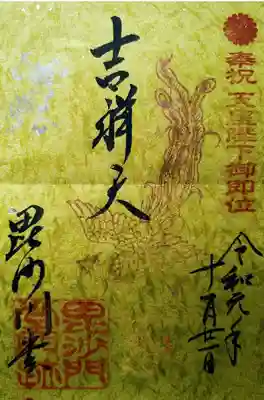 奉祝 天皇陛下御即位
令和元年
十月廿
吉祥天
毘沙門堂
毘沙門